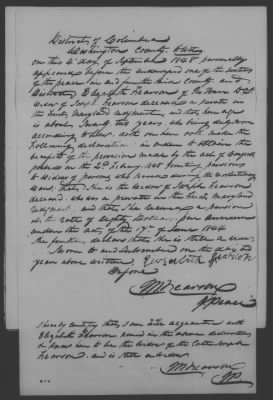 District of Columbia
Washington County, to wit
On this 4th day of September 1848 personally
appeared before the undersigned one of the Justices
of the peace in and for the said county and
District, Elizabeth Fearson of
widow of Joseph Fearson deceased a private in
the Maryland and that her age
is above two years, who being duly sworn
according to Law, doth on her oath make the
following declaration in order to obtain the
benefit of the provision made by the act of Congress
passed on the 2d February 1848 granting pensions
to widows of persons who served during the Revolutionary
War: That She is the widow of Joseph Fearson
deceased who was a private in the Maryland
and that She a pension
at the rate of Eighty Dollars per annum
under the act of the 17th of June 1844
She further declares that she is still a widow.
Sworn to and Subscribed on the day and
year above written Elizabeth Fearson
before
Fearson
J Peace
I hereby certify that I am well acquainted with
Elizabeth Fearson named in the above declaration
and know her to be the widow of the late
Fearson, and is still a widow
Fearson
JP